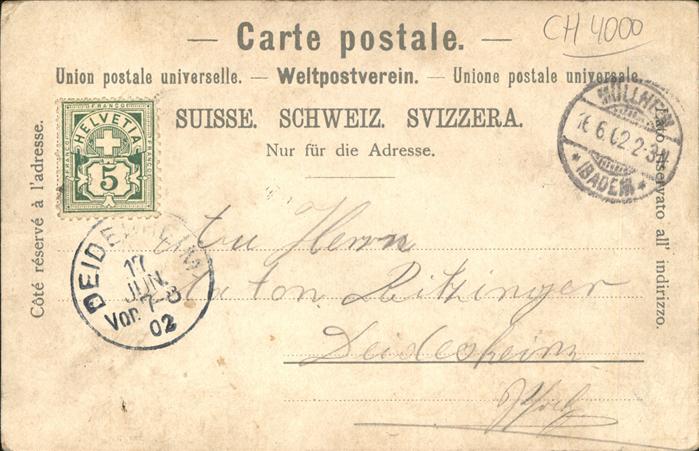 CH 4000
Carte postale.
Union postale universelle. — Weltpostverein. — Unione postale universale.
SUISSE. SCHWEIZ. SVIZZERA.
Nur für die Adresse.
Côté réservé à l'adresse.
Lato riservato all' indirizzo.
FRANCO
HELVETIA
FRANCO
FRANCO
5
MÜLLHEIM
16.6.02.2-3N
* (BADEN) *
DEIDESHEIM
17
JUN.
Vor. 7-8
02
Herrn
Anton Bitzinger
Deidesheim
Pfalz